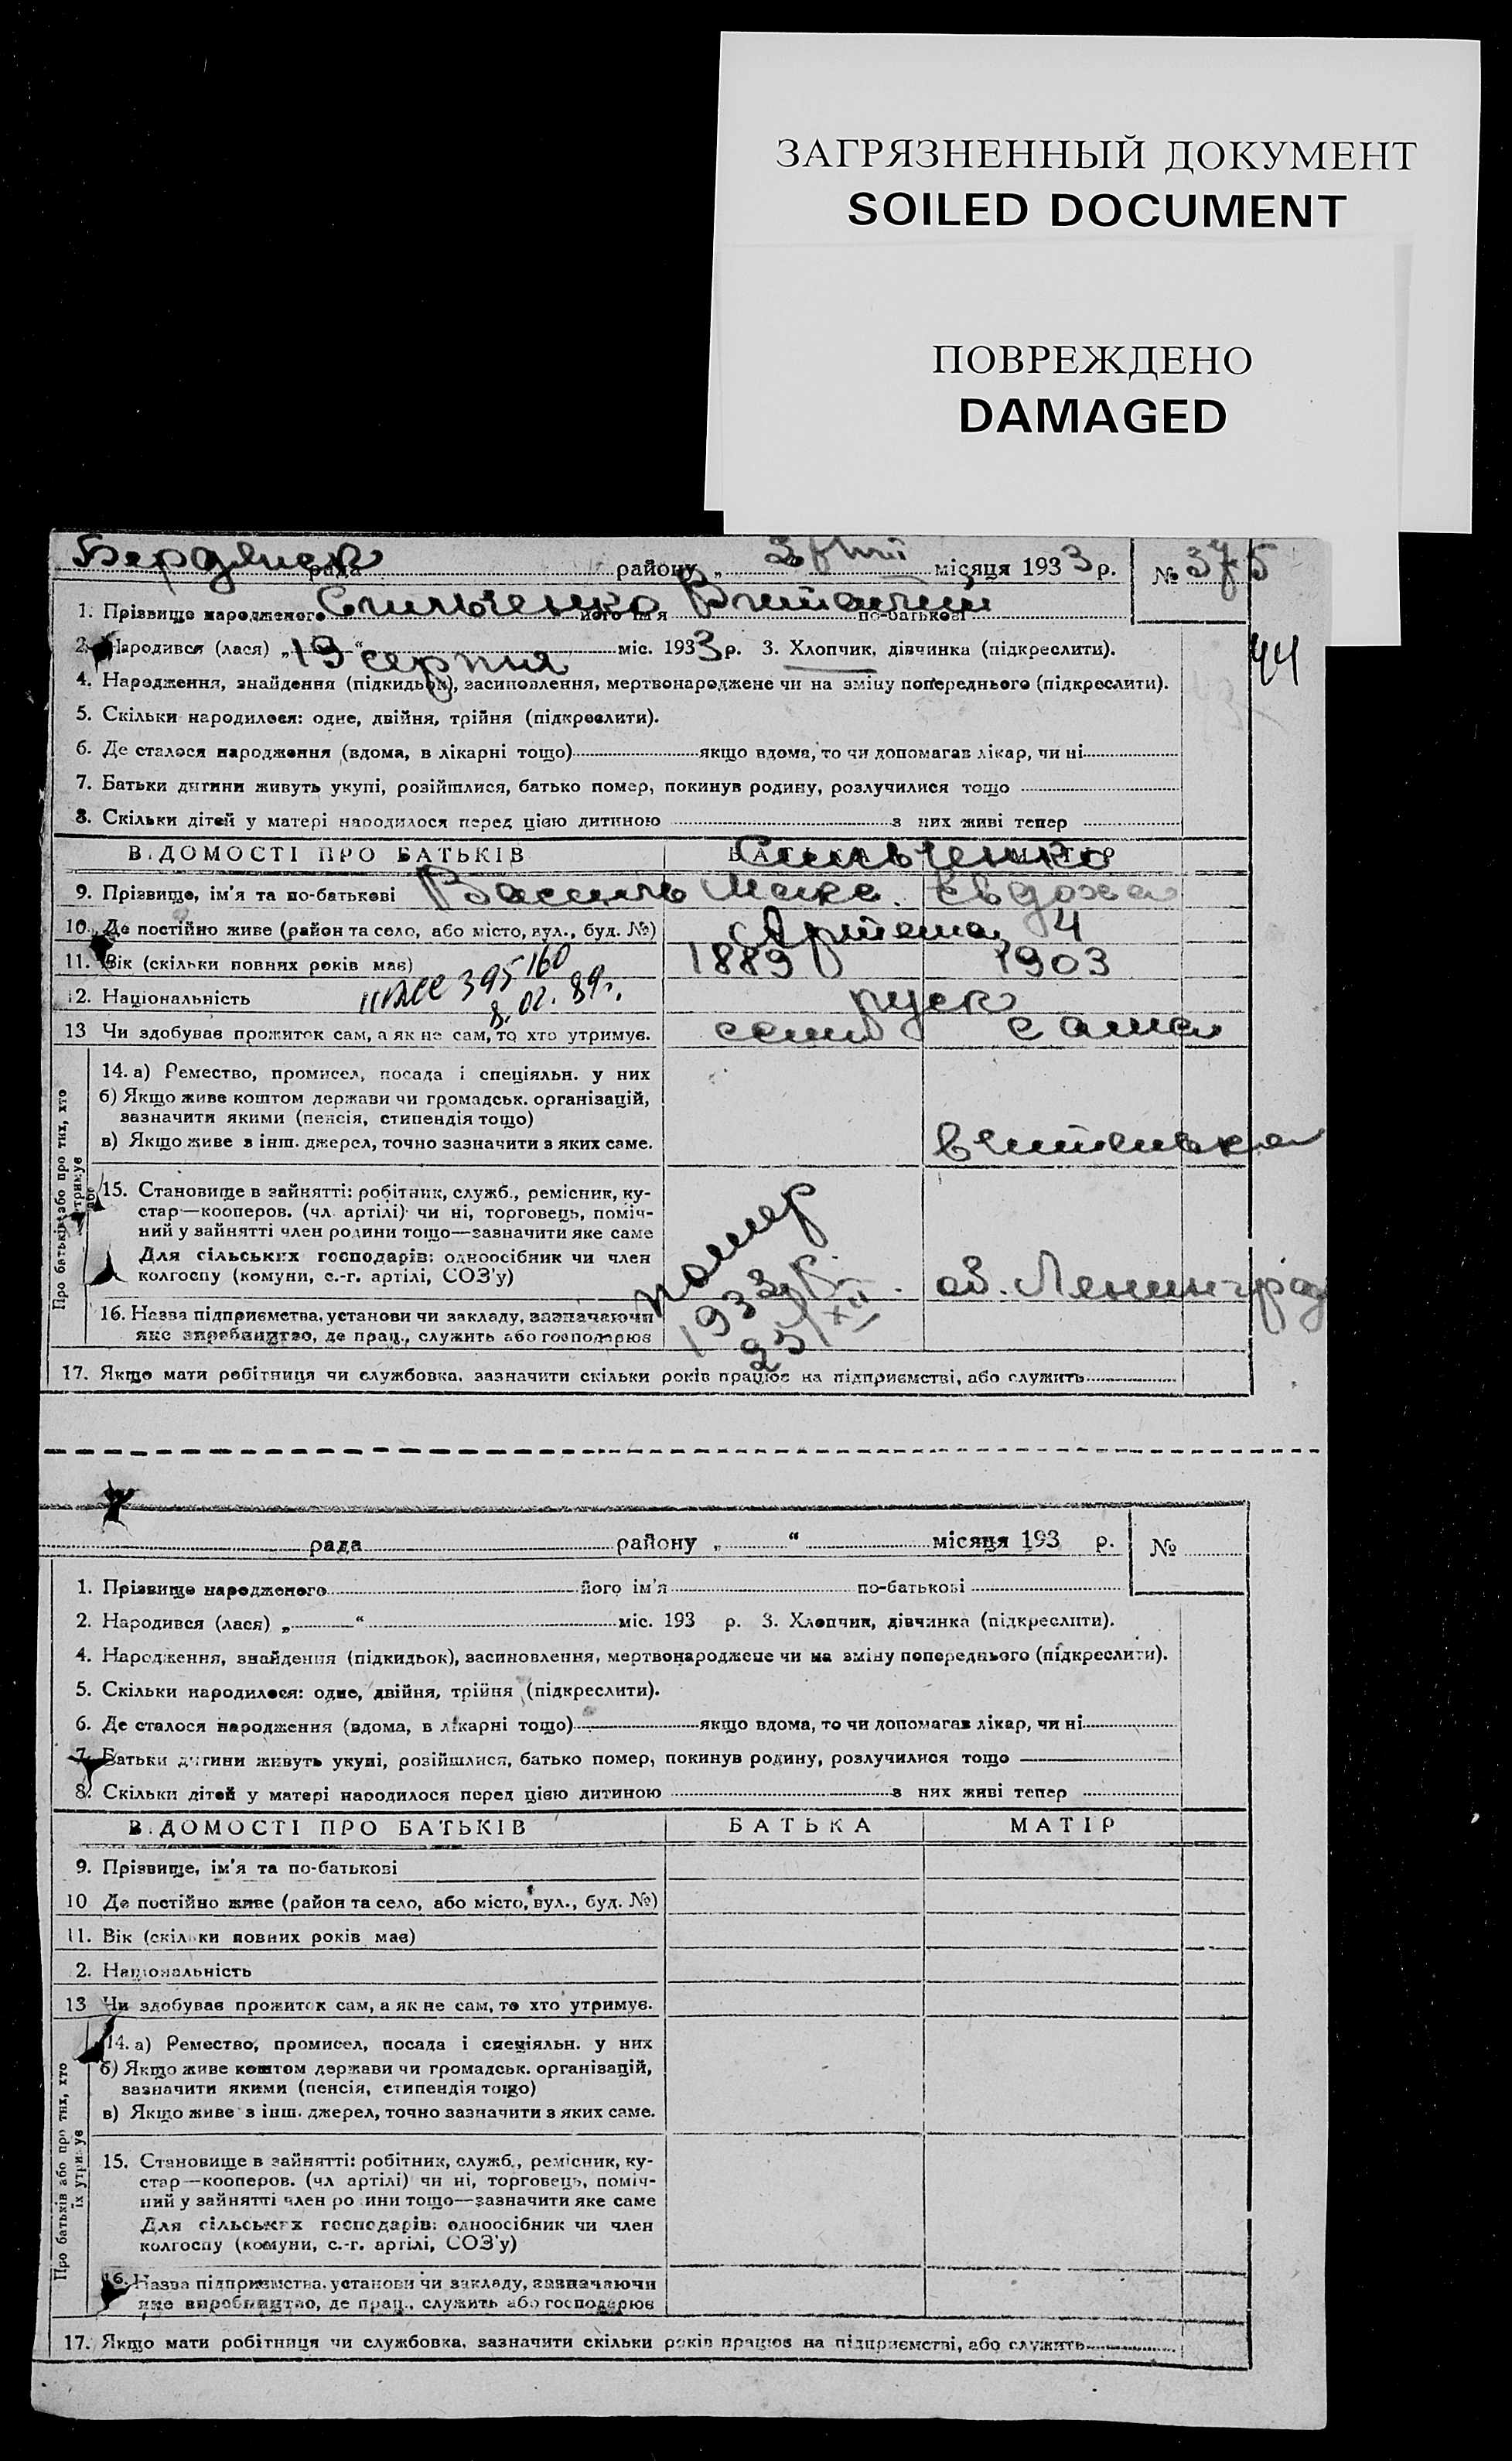 ЗАГРЯЗНЕННЫЙ ДОКУМЕНТ
SOILED DOCUMENT
ПОВРЕЖДЕНО
DAMAGED
Бердянск рада району „ місяця 1933 р. № 375
1. Прізвище народженого Сильченко його ім'я Виталий по-батькові
2. Народився (лася) „19“ серпня міс. 1933 р. 3. Хлопчик, дівчинка (підкреслити). 44
4. Народження, знайдення (підкидьок), засиновлення, мертвонароджене чи на зміну попереднього (підкреслити).
5. Скільки народилося: одне, двійня, трійня (підкреслити).
6. Де сталося народження (вдома, в лікарні тощо) якщо вдома, то чи допомагав лікар, чи ні
7. Батьки дитини живуть укупі, розійшлися, батько помер, покинув родину, розлучилися тощо
8. Скільки дітей у матері народилося перед цією дитиною з них живі тепер
ВІДОМОСТІ ПРО БАТЬКІВ БАТЬКА МАТІР
Сильченко
9. Прізвище, ім'я та по-батькові Василь Макс. Євдокія
10. Де постійно живе (район та село, або місто, вул., буд. №) Артема, 4
11. Вік (скільки повних років має) 1889 1903
12. Національність 395160 руск
8.02.89г.
13 Чи здобував прожиток сам, а як не сам, то хто утримує. сам сама
Про батьків або про тих, хто їх утримує
14. а) Ремество, промисел, посада і спеціяльн. у них
б) Якщо живе коштом держави чи громадськ. організацій,
зазначити якими (пенсія, стипендія тощо)
в) Якщо живе з інш. джерел, точно зазначити з яких саме.
вчителька
15. Становище в зайнятті: робітник, служб., ремісник, ку-
стар—кооперов. (чл. артілі) чи ні, торговець, поміч-
ний у зайнятті член родини тощо—зазначити яке саме
Для сільських господарів: одноосібник чи член
колгоспу (комуни, с.-г. артілі, СОЗ'у)
помер
1933 р.
25/XII
об. Ленинград
16. Назва підприємства, установи чи закладу, зазначаючи
яке виробництво, де прац., служить або господарює
17. Якщо мати робітниця чи службовка, зазначити скільки років працює на підприємстві, або служить
рада району „ “ місяця 193 р. №
1. Прізвище народженого його ім'я по-батькові
2. Народився (лася) „ “ міс. 193 р. 3. Хлопчик, дівчинка (підкреслити).
4. Народження, знайдення (підкидьок), засиновлення, мертвонароджене чи на зміну попереднього (підкреслити).
5. Скільки народилося: одне, двійня, трійня (підкреслити).
6. Де сталося народження (вдома, в лікарні тощо) якщо вдома, то чи допомагав лікар, чи ні
7. Батьки дитини живуть укупі, розійшлися, батько помер, покинув родину, розлучилися тощо
8. Скільки дітей у матері народилося перед цією дитиною з них живі тепер
ВІДОМОСТІ ПРО БАТЬКІВ БАТЬКА МАТІР
9. Прізвище, ім'я та по-батькові
10 Де постійно живе (район та село, або місто, вул., буд. №)
11. Вік (скільки повних років має)
2. Національність
13 Чи здобував прожиток сам, а як не сам, то хто утримує.
Про батьків або про тих, хто їх утримує
14. а) Ремество, промисел, посада і спеціяльн. у них
б) Якщо живе коштом держави чи громадськ. організацій,
зазначити якими (пенсія, стипендія тощо)
в) Якщо живе з інш. джерел, точно зазначити з яких саме.
15. Становище в зайнятті: робітник, служб., ремісник, ку-
стар—кооперов. (чл артілі) чи ні, торговець, поміч-
ний у зайнятті член родини тощо—зазначити яке саме
Для сільських господарів: одноосібник чи член
колгоспу (комуни, с.-г. артілі, СОЗ'у)
16. Назва підприємства, установи чи закладу, зазначаючи
яке виробництво, де прац., служить або господарює
17. Якщо мати робітниця чи службовка, зазначити скільки років працює на підприємстві, або служить